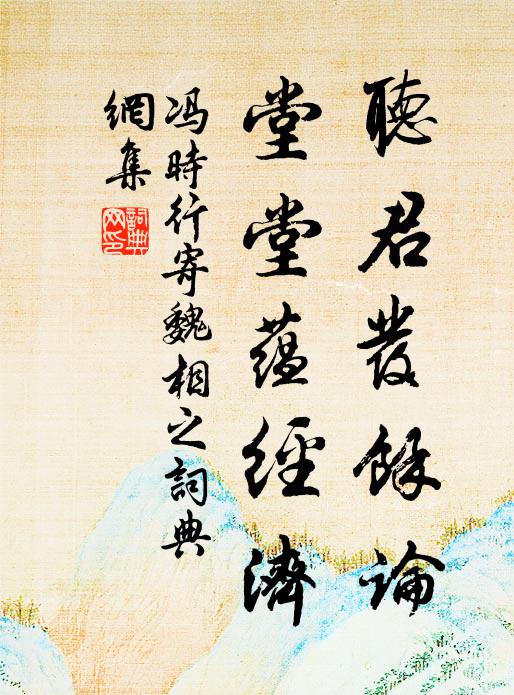 聽君發餘論
堂堂蕴經濟
冯時行寄魏相之詞典
網集
詞典
网印